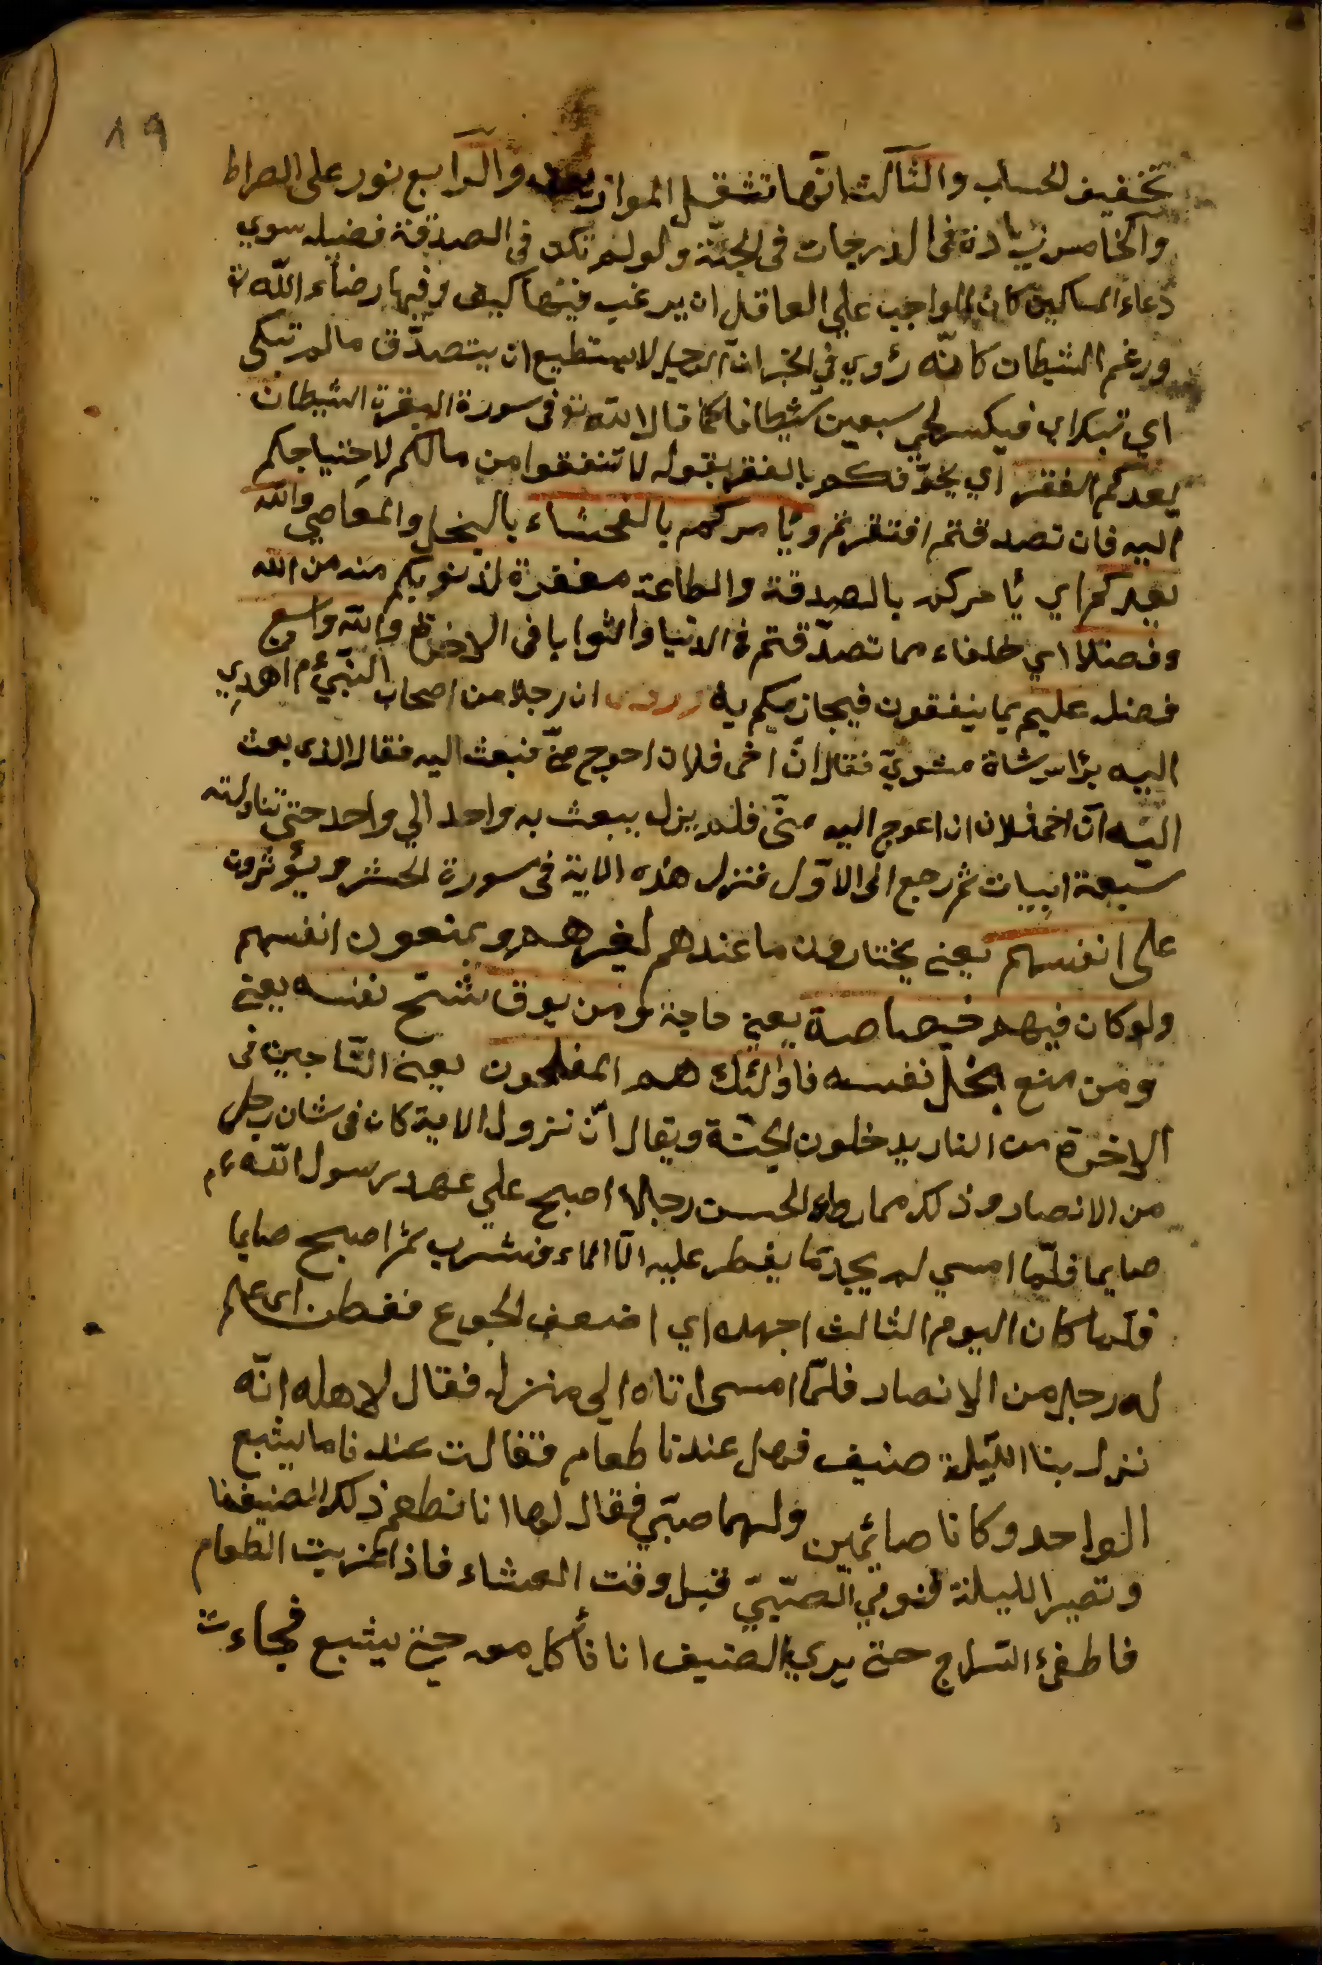 ٨٩
تخفيف الحساب والثالث انها تثقل الموازين والرابع نور على الصراط
والخامس زيادة في الدرجات في الجنّة ولو لم تكن في الصدقة فضيله سوي
دعاء المساكين كان الواجب علي العاقل ان يرغب فيها كيف وفيها رضاء الله تع
ورغم الشيطان كانّه رؤي في الخبر انّ الرجل لا يستطيع ان يتصدّق مالم تبكى
اي فيكسر لحي سبعين شيطانا كما قال الله تع في سورة البقرة الشيطان
يعدكم الفقر اي يخوّفكم بالفقر بقوله لا تنفقوا من مالكم لاحتياجكم
اليه فان تصدقتم افتقرتم ويأمركم بالفحشاء بالبخل والمعاصي والله
يعدكم اي يأمركم بالصدقة والطاعة مغفرة لذنوبكم منه من الله
وفضلا اي خلفاء مما تصدّقتم في الدنيا والثوابا في الاخرة والله واسع
فضله عليم بما ينفقون فيجازيكم به ان رجلا من اصحاب النّبيّ م اهدي
اليه براس شاة مشويّ فقال انّ اخي فلان احوج منّي فبعث اليه فقال الذي بعث
اليه انّ اخي فلان ان اعوج اليه منّي فلم يزل يبعث به واحد الي واحد حتي تناولته
سبعة ابيات ثم رجع الى الاوّل فنزل هذه الاية في سورة الحشر ويؤثرون
على انفسهم يعني يختارون ما عندهم لغيرهم ويمنعون انفسهم
ولو كان فيهم خصاصة يعني حاجة ومن يوق شحّ نفسه يعني
ومن منع بخل نفسه فاولئك هم المفلحون يعني النّاجين في
الاخرة من النار يدخلون الجنّة ويقال انّ نزول الاية كان في شان رجل
من الانصار وذلك مما رواه الحسن رجالا اصبح علي عهد رسول الله م
صايما فلمّا امسي لم يجد ما يفطر عليه الّا الماء فشرب ثم اصبح صايما
فلما كان اليوم الثالث اجهده اي اضعف الجوع ففطن اي علم
له رجل من الانصار فلمّا امسى اتاه الي منزله فقال لاهله انّه
نزل بنا الليلة ضيف فهل عندنا طعام فقالت عندنا ما يشبع
الواحد وكانا صائمين ولهما صبّي فقال لها انا نطعم ذلك الضيفنا
وتصبر الليلة فنومي الصبّيّ قبل وقت العشاء فاذا الطعام
فاطفئ السّراج حتي يري الضيف انا نأكل معه حتي يشبع فجاءت